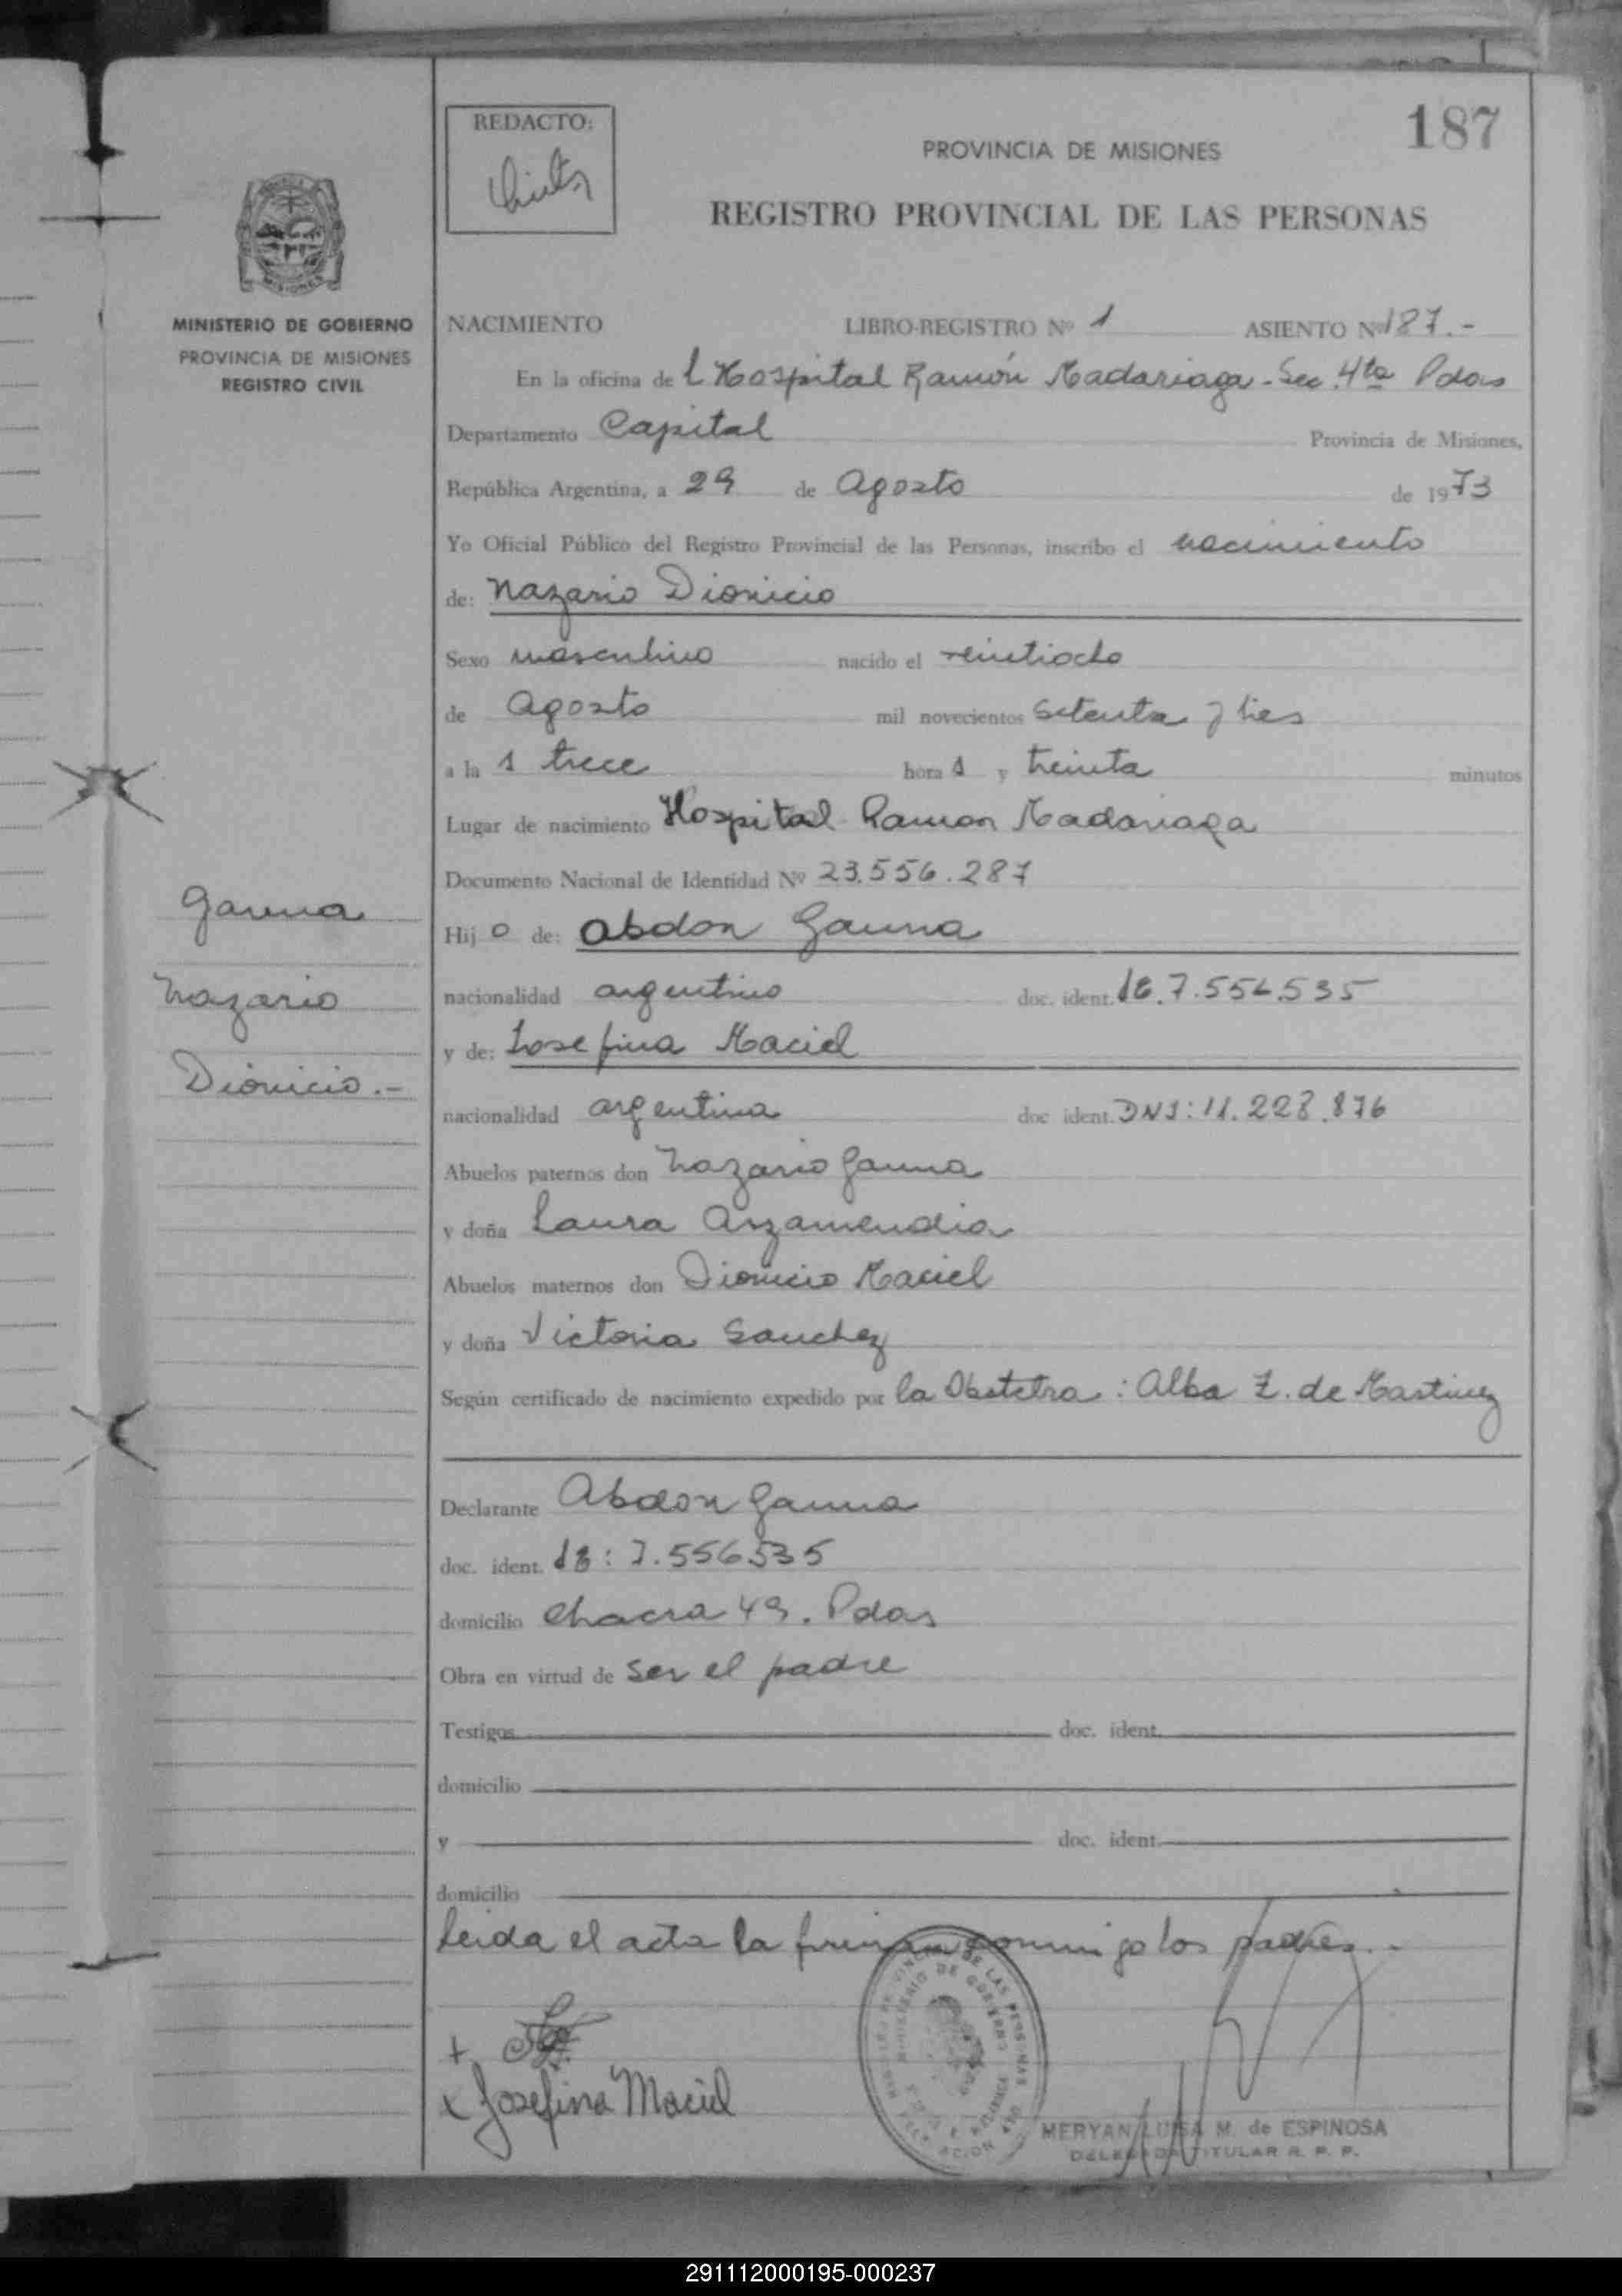 187
REDACTO:
PROVINCIA DE MISIONES
REGISTRO PROVINCIAL DE LAS PERSONAS
MISIONES
MINISTERIO DE GOBIERNO
PROVINCIA DE MISIONES
REGISTRO CIVIL
NACIMIENTO LIBRO-REGISTRO Nº 1 ASIENTO Nº 187.-
En la oficina de l Hospital Ramón Madariaga - Sec. 4ta Pdas
Departamento Capital Provincia de Misiones,
República Argentina, a 29 de Agosto de 1973
Yo Oficial Público del Registro Provincial de las Personas, inscribo el nacimiento
de: Nazario Dionicio
Sexo masculino nacido el veintiocho
de Agosto mil novecientos setenta y tres
a la s trece hora s y treinta minutos
Lugar de nacimiento Hospital Ramon Madariaga
Documento Nacional de Identidad Nº 23.556.287
Hij o de: Abdon Gauna
nacionalidad argentino doc. ident. 7.556.535
y de: Josefina Maciel
nacionalidad argentina doc ident. DNI: 11.228.876
Abuelos paternos don Nazario Gauna
y doña Laura Arzamendia
Abuelos maternos don Dionicio Maciel
y doña Victoria Sanchez
Según certificado de nacimiento expedido por la Obstetra: Alba Z. de Martinez
Declarante Abdon Gauna
doc. ident. 7.556.535
domicilio Chacra 49. Pdas
Obra en virtud de ser el padre
Testigos doc. ident.
domicilio
y doc. ident.
domicilio
Leida el acta la firman conmigo los padres.-
+
x Josefina Maciel
MERYAN LUISA M. de ESPINOSA
DELEGADA TITULAR R. P. P.
Gauna
Nazario
Dionicio.-
291112000195-000237